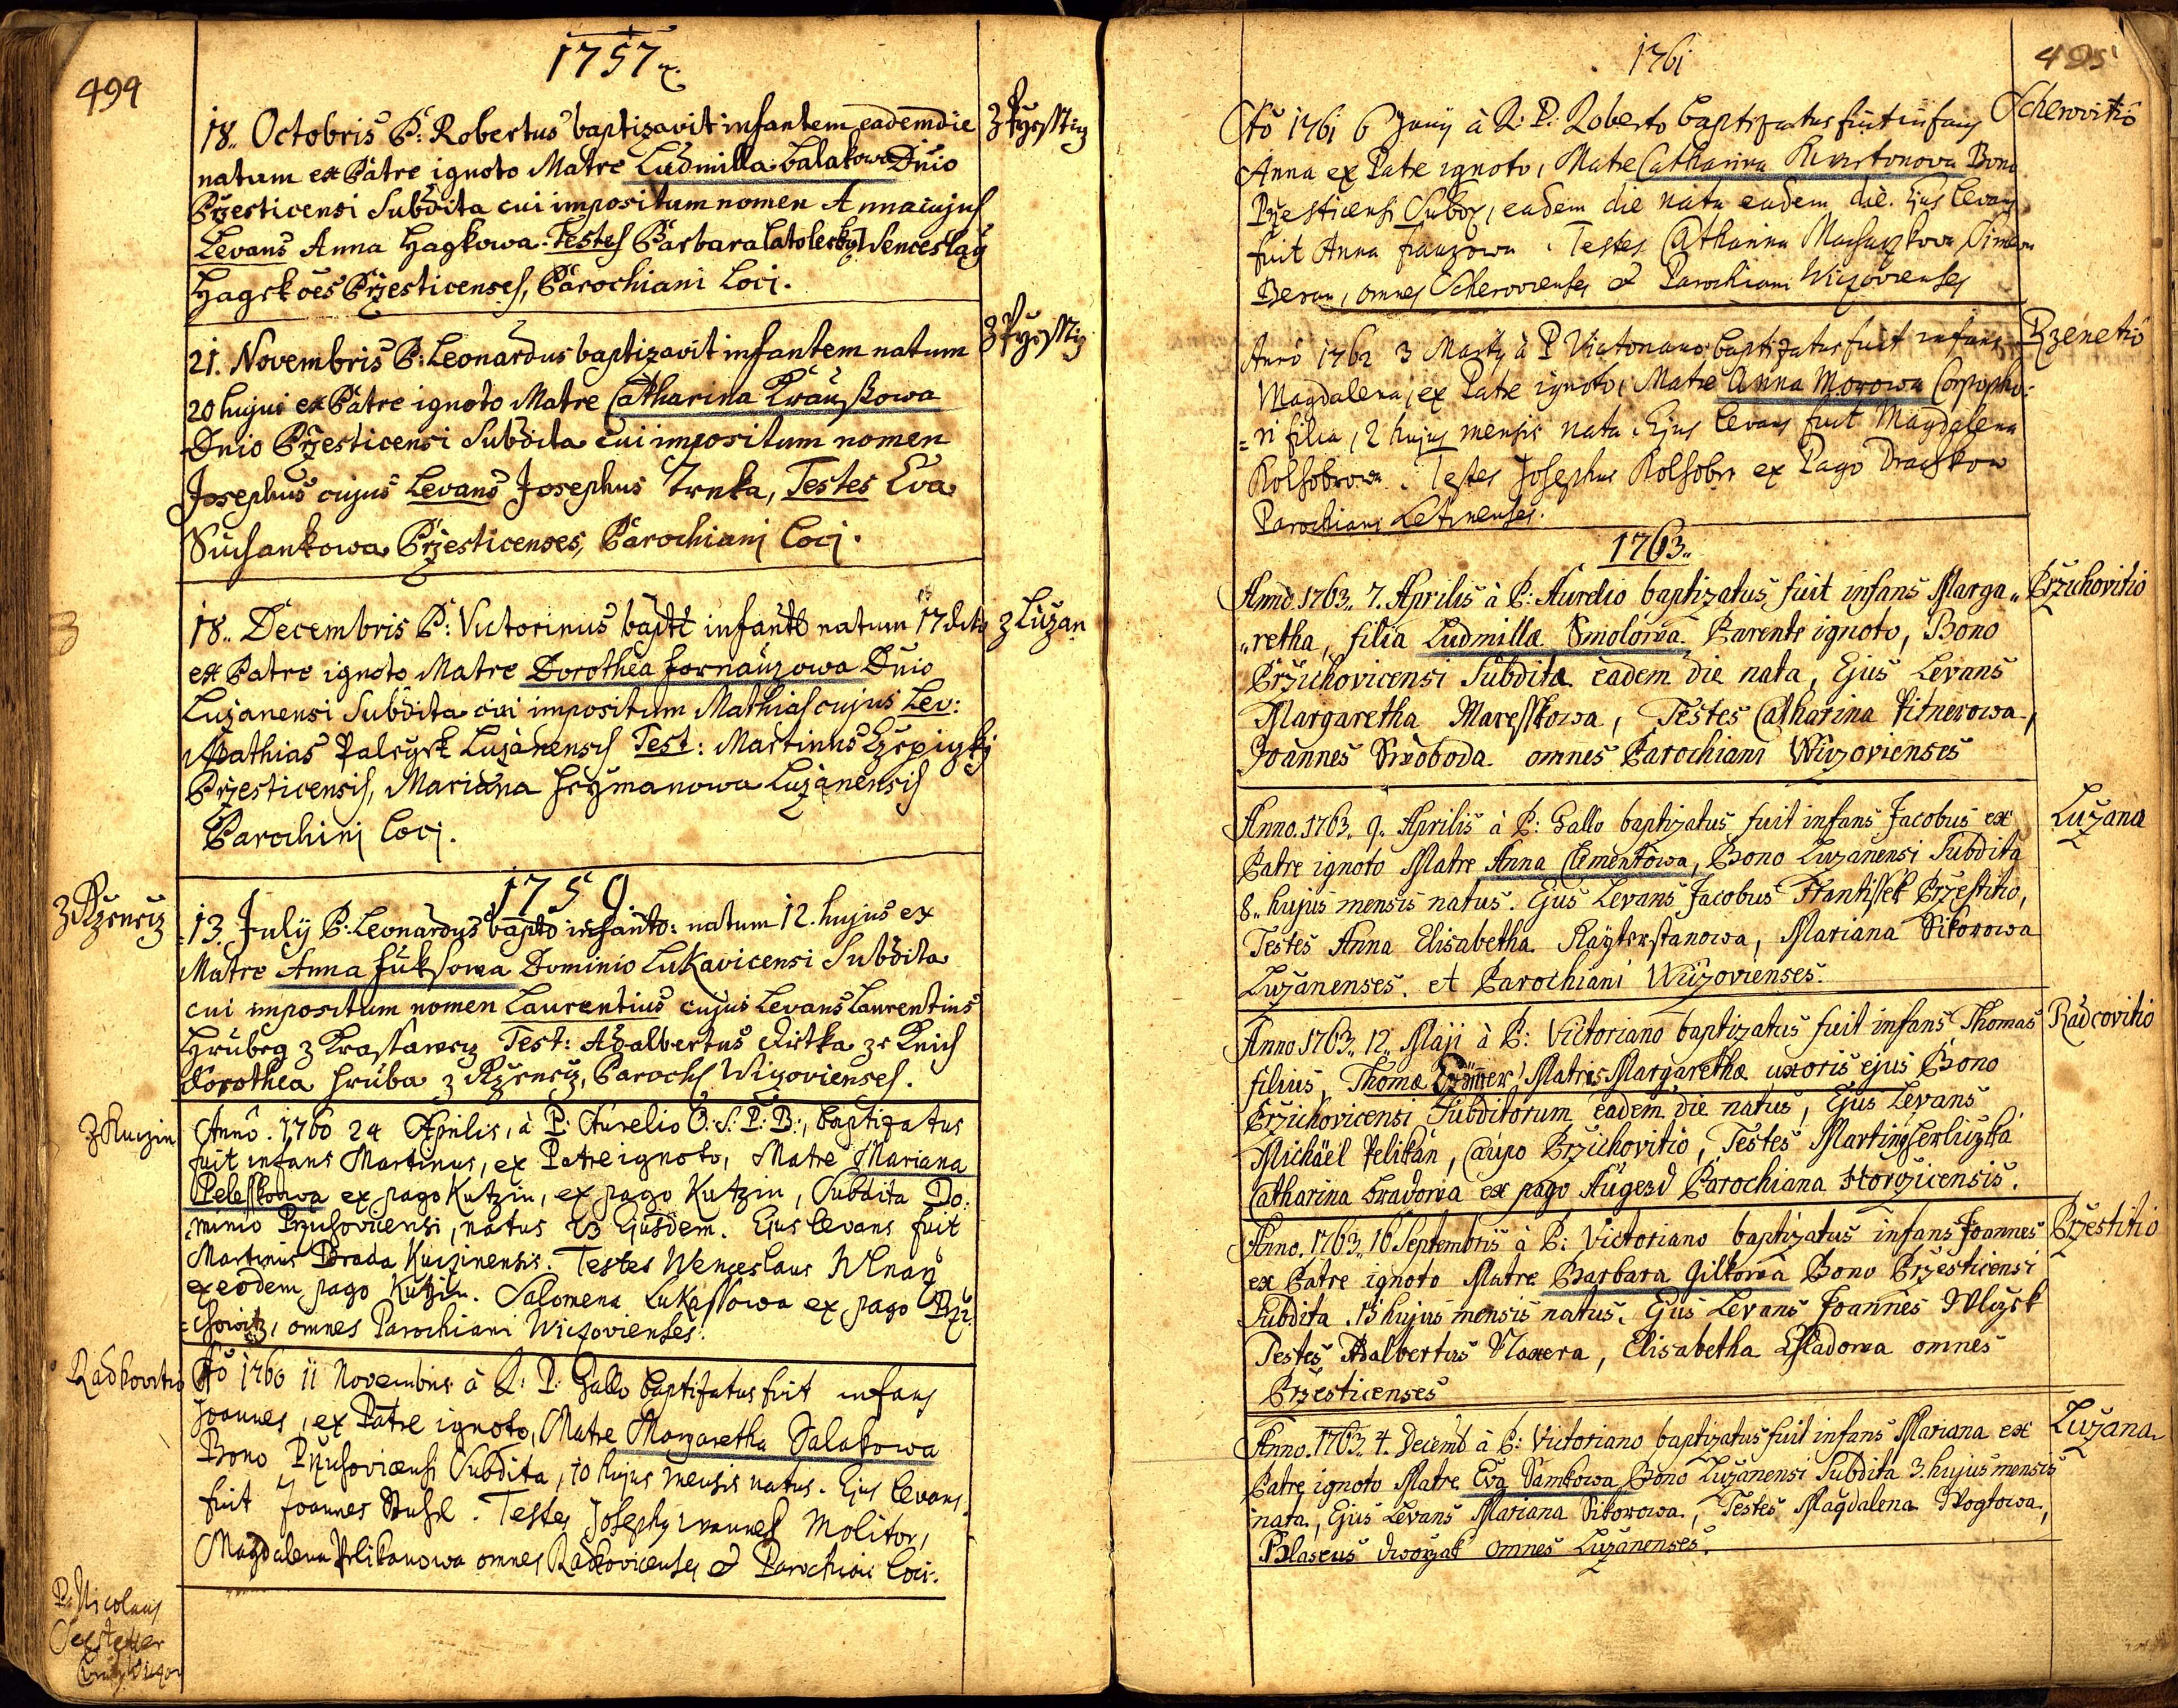 494
1757
18. Octobris P: Robertus baptizavit infantem eadem die
natum ex Patre ignoto Matre Ludmilla Balakowa Dnio
Przesticensi Subdita cui impositum nomen Anna cujus
Levans Anna Hagkowa. Testes Barbara Wenceslaÿ
Hagek oes Przesticenses, Parochiani Loci.
21. Novembris P: Leonardus baptizavit infantem natum
20 hujus ex Patre ignoto Matre Catharina Kraußowa
Dnio Przesticensi Subdita cui impositum nomen
Josephus cujus Levans Josephus Trnka, Testes Eva
Suchankowa Przesticenses, Parochiani Loci.
z Luzan
18. Decembris P: Victorinus bapt infant natum 17 dito
ex Patre ignoto Matre Dorothea Fornauzowa Dnio
Luzanensi Subdita cui impositum Mathias cujus Lev:
Mathias Palcysk Luzanensis Test: Martinus
Przesticensis, Mariana Heymanowa Luzanensis
Parochini Loci.
1759
13. Julij P: Leonardus bapto infanto: natum 12. hujus ex
Matre Anna Fuksowa Dominio Lukavicensi Subdita
cui impositum nomen Laurentius cujus Levans Laurentius
Hrubeg z Test: Adalbertus
Dorothea Hruba z Parochi Wizovienses.
z Kuczin
Anno. 1760 24 Aprilis, à P: Aurelio O: S: P: B:, baptizatus
fuit infans Martinus, ex Patre ignoto, Matre Mariana
Pelesskowa ex pago Kutzin, ex pago Kutzin, Subdita Do:
minio Przichovicensi, natus 23 Ejusdem. Ejus levans fuit
Martinus Brada Kuczinensis. Testes Wenceslaus
ex eodem pago Kutzin. Salomena Lukassowa ex pago Brzi
chowitz, omnes Parochiani Wiczovienses.
Radkovitio
Ao 1760 11 Novembris à R: P: Gallo baptizatus fuit infans
Joannes, ex Patre ignoto, Matre Margaretha Salakowa
Bono Przichovicensi Subdita, 10 hujus mensis natus. Ejus levans
fuit Joannes. Testes Josephus Molitor,
Magdalena Pelikanowa omnes Radkovicenses & Parochiani Loci.
P. Nicolaus
495
1761
Ao 1761 6 Junij à R: P: Roberto baptizatus fuit infans
Anna ex Patre ignoto, Matre Catharina Bono
Przesticensi Subdi, eadem die nata eadem die. Ejus levans
fuit Anna. Testes Catharina
Beran, omnes & Parochiani Wiczovienses
Rzenetio
Anno 1762 3 Martij à P Victoriano baptizatus fuit infans
Magdalena, ex Patre ignoto, Matre Anna Morowa
filia, 2 hujus mensis nata. Ejus levans fuit Magdalena
Rolsobrowa. Testes Josephus Rolsobr ex Pago
Parochiani Letinenses.
1763
Przichovitio
Anno. 1763. 7. Aprilis à P: Aurelio baptizatus fuit infans Marga„
„retha, filia Ludmillæ Smolowa Parente ignoto, Bono
Przichovicensi Subdita eadem die nata, Ejus Levans
Margaretha Maresskowa, Testes Catharina Pitnerowa,
Joannes Swoboda omnes Parochiani Wizovienses
Luzana
Anno. 1763. 9. Aprilis à P: Gallo baptizatus fuit infans Jacobus ex
Patre ignoto Matre Anna Clementowa, Bono Luzanensi Subdita
8. hujus mensis natus. Ejus Levans Jacobus Frantissek Przestitio,
Testes Anna Elisabetha, Mariana Sikorowa
Luzanenses. et Parochiani Wizovienses.
Radcovitio
Anno 1763. 12. Maji à P: Victoriano baptizatus fuit infans Thomas
filius, Thomæ Matris Margarethæ uxoris ejus Bono
Przichovicensi Subditorum eadem die natus, Ejus Levans
Michäel Pelikán, Caupo Przichovitio, Testes Martinus
Catharina Bradowa ex pago Augezd Parochiana
Przestitio
Anno. 1763. 16 Septembris à P: Victoriano baptizatus infans Joannes
ex Patre ignoto Matre Barbara Gilkowa Bono Przesticensi
Subdita 15 hujus mensis natus. Ejus Levans Joannes Wlczek
Testes Adalbertus, Elisabetha omnes
Przesticenses
Luzana
Anno. 1763. 4. Decemb à P: Victoriano baptizatus fuit infans Mariana ex
Patre ignoto Matre Eva Samkowa Bono Luzanensi Subdita 3. hujus mensis
nata, Ejus Levans Mariana Sikorowa, Testes Magdalena Wogtowa,
Blaseus Dworzak omnes Luzanenses.